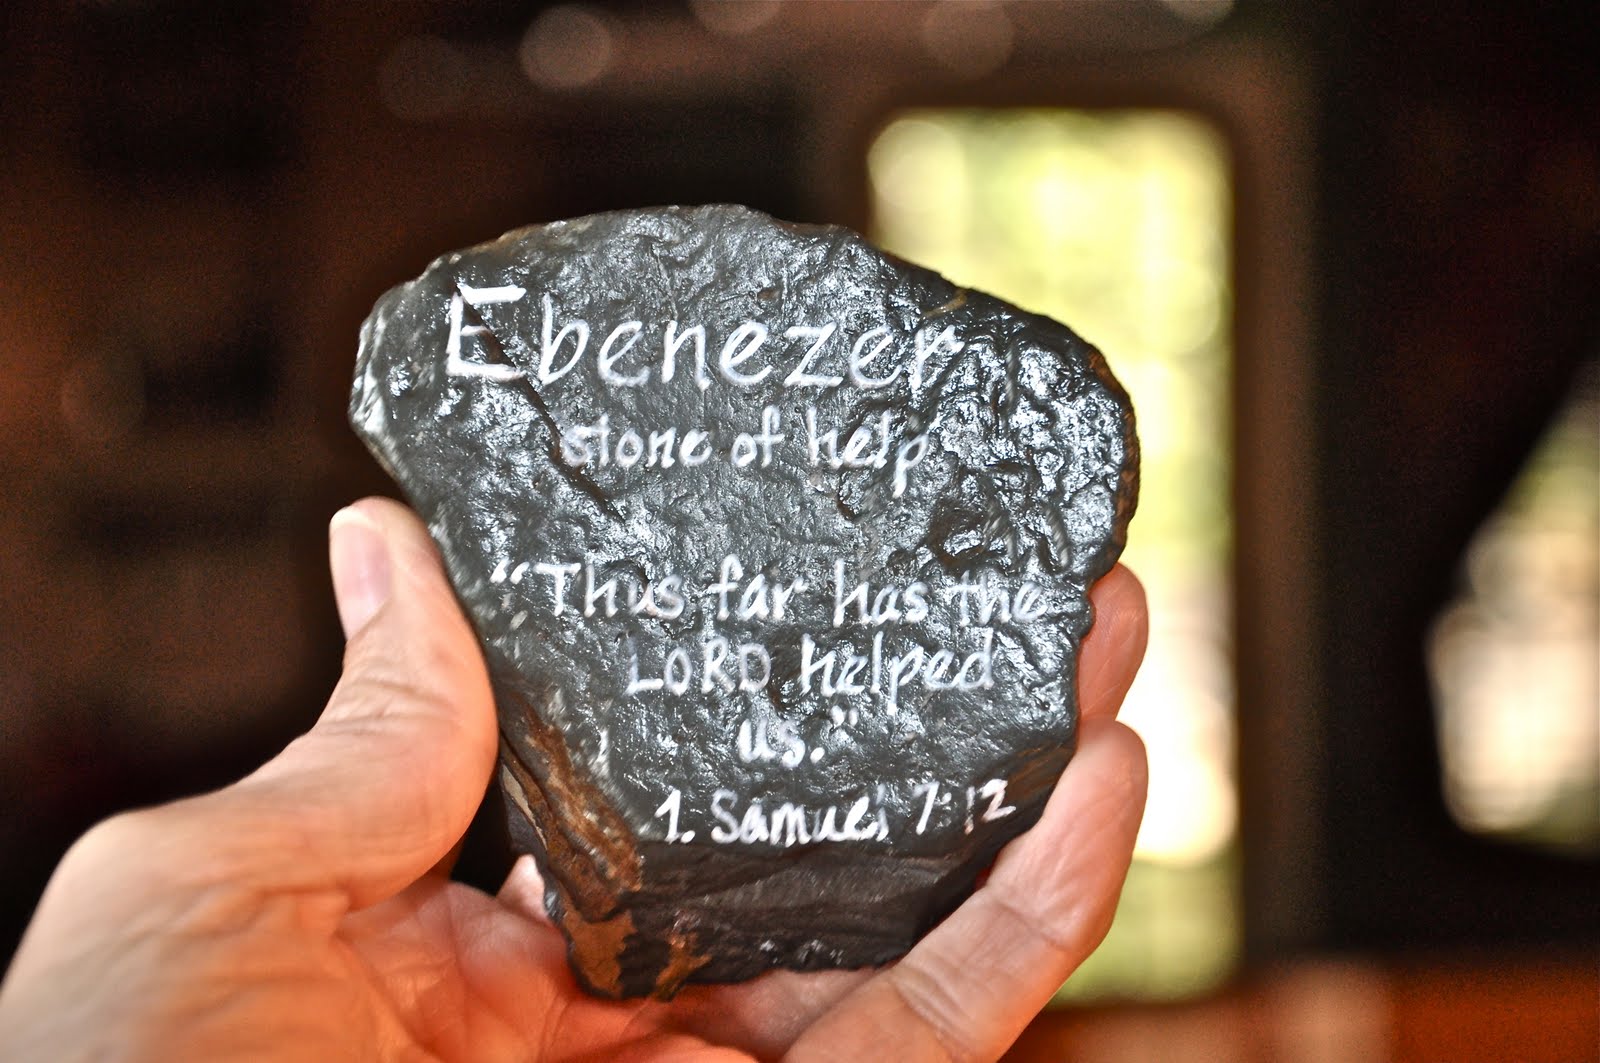 Ebenezer
stone of help
"Thus far has the
LORD helped
us."
1. Samuel 7:12